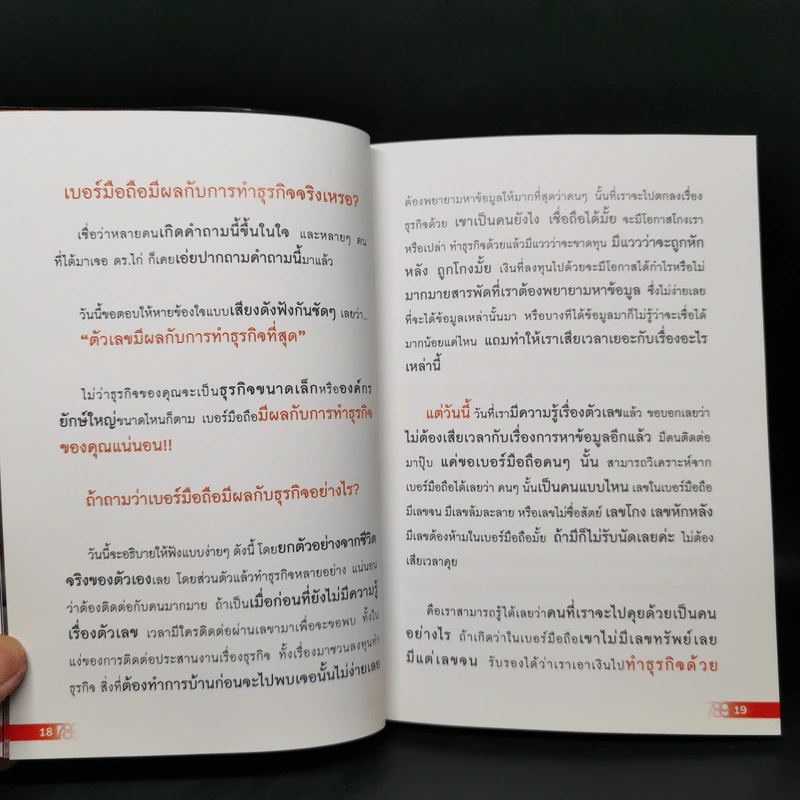 เบอร์มือถือมีผลกับการทำธุรกิจจริงเหรอ?
เชื่อว่าหลายคนเกิดคำถามนี้ขึ้นในใจ และหลายๆ คน
ที่ได้มาเจอ ดร.ไก่ ก็เคยเอ่ยปากถามคำถามนี้มาแล้ว
วันนี้ขอตอบให้หายข้องใจแบบเสียงดังฟังกันชัดๆ เลยว่า...
“ตัวเลขมีผลกับการทำธุรกิจที่สุด”
ไม่ว่าธุรกิจของคุณจะเป็นธุรกิจขนาดเล็กหรือองค์กร
ยักษ์ใหญ่ขนาดไหนก็ตาม เบอร์มือถือมีผลกับการทำธุรกิจ
ของคุณแน่นอน!!
ถ้าถามว่าเบอร์มือถือมีผลกับธุรกิจอย่างไร?
วันนี้จะอธิบายให้ฟังแบบง่ายๆ ดังนี้ โดยยกตัวอย่างจากชีวิต
จริงของตัวเองเลย โดยส่วนตัวแล้วทำธุรกิจหลายอย่าง แน่นอน
ว่าต้องติดต่อกับคนมากมาย ถ้าเป็นเมื่อก่อนที่ยังไม่มีความรู้
เรื่องตัวเลข เวลามีใครติดต่อผ่านเลขามาเพื่อจะขอพบ ทั้งใน
แง่ของการติดต่อประสานงานเรื่องธุรกิจ ทั้งเรื่องมาชวนลงทุนทำ
ธุรกิจ สิ่งที่ต้องทำการบ้านก่อนจะไปพบเจอนั้นไม่ง่ายเลย
18 789
ต้องพยายามหาข้อมูลให้มากที่สุดว่าคนๆ นั้นที่เราจะไปตกลงเรื่อง
ธุรกิจด้วย เขาเป็นคนยังไง เชื่อถือได้มั้ย จะมีโอกาสโกงเรา
หรือเปล่า ทำธุรกิจด้วยแล้วมีแววว่าจะขาดทุน มีแววว่าจะถูกหัก
หลัง ถูกโกงมั้ย เงินที่ลงทุนไปด้วยจะมีโอกาสได้กำไรหรือไม่
มากมายสารพัดที่เราต้องพยายามหาข้อมูล ซึ่งไม่ง่ายเลย
ที่จะได้ข้อมูลเหล่านั้นมา หรือบางทีได้ข้อมูลมาก็ไม่รู้ว่าจะเชื่อได้
มากน้อยแค่ไหน แถมทำให้เราเสียเวลาเยอะกับเรื่องอะไร
เหล่านี้
แต่วันนี้ วันที่เรามีความรู้เรื่องตัวเลขแล้ว ขอบอกเลยว่า
ไม่ต้องเสียเวลากับเรื่องการหาข้อมูลอีกแล้ว มีคนติดต่อ
มาปุ๊บ แค่ขอเบอร์มือถือคนๆ นั้น สามารถวิเคราะห์จาก
เบอร์มือถือได้เลยว่า คนๆ นั้นเป็นคนแบบไหน เลขในเบอร์มือถือ
มีเลขจน มีเลขล้มละลาย หรือเลขไม่ซื่อสัตย์ เลขโกง เลขหักหลัง
มีเลขต้องห้ามในเบอร์มือถือมั้ย ถ้ามีก็ไม่รับนัดเลยค่ะ ไม่ต้อง
เสียเวลาคุย
คือเราสามารถรู้ได้เลยว่าคนที่เราจะไปคุยด้วยเป็นคน
อย่างไร ถ้าเกิดว่าในเบอร์มือถือเขาไม่มีเลขทรัพย์เลย
มีแต่เลขจน รับรองได้ว่าเราเอาเงินไปทำธุรกิจด้วย
789 19